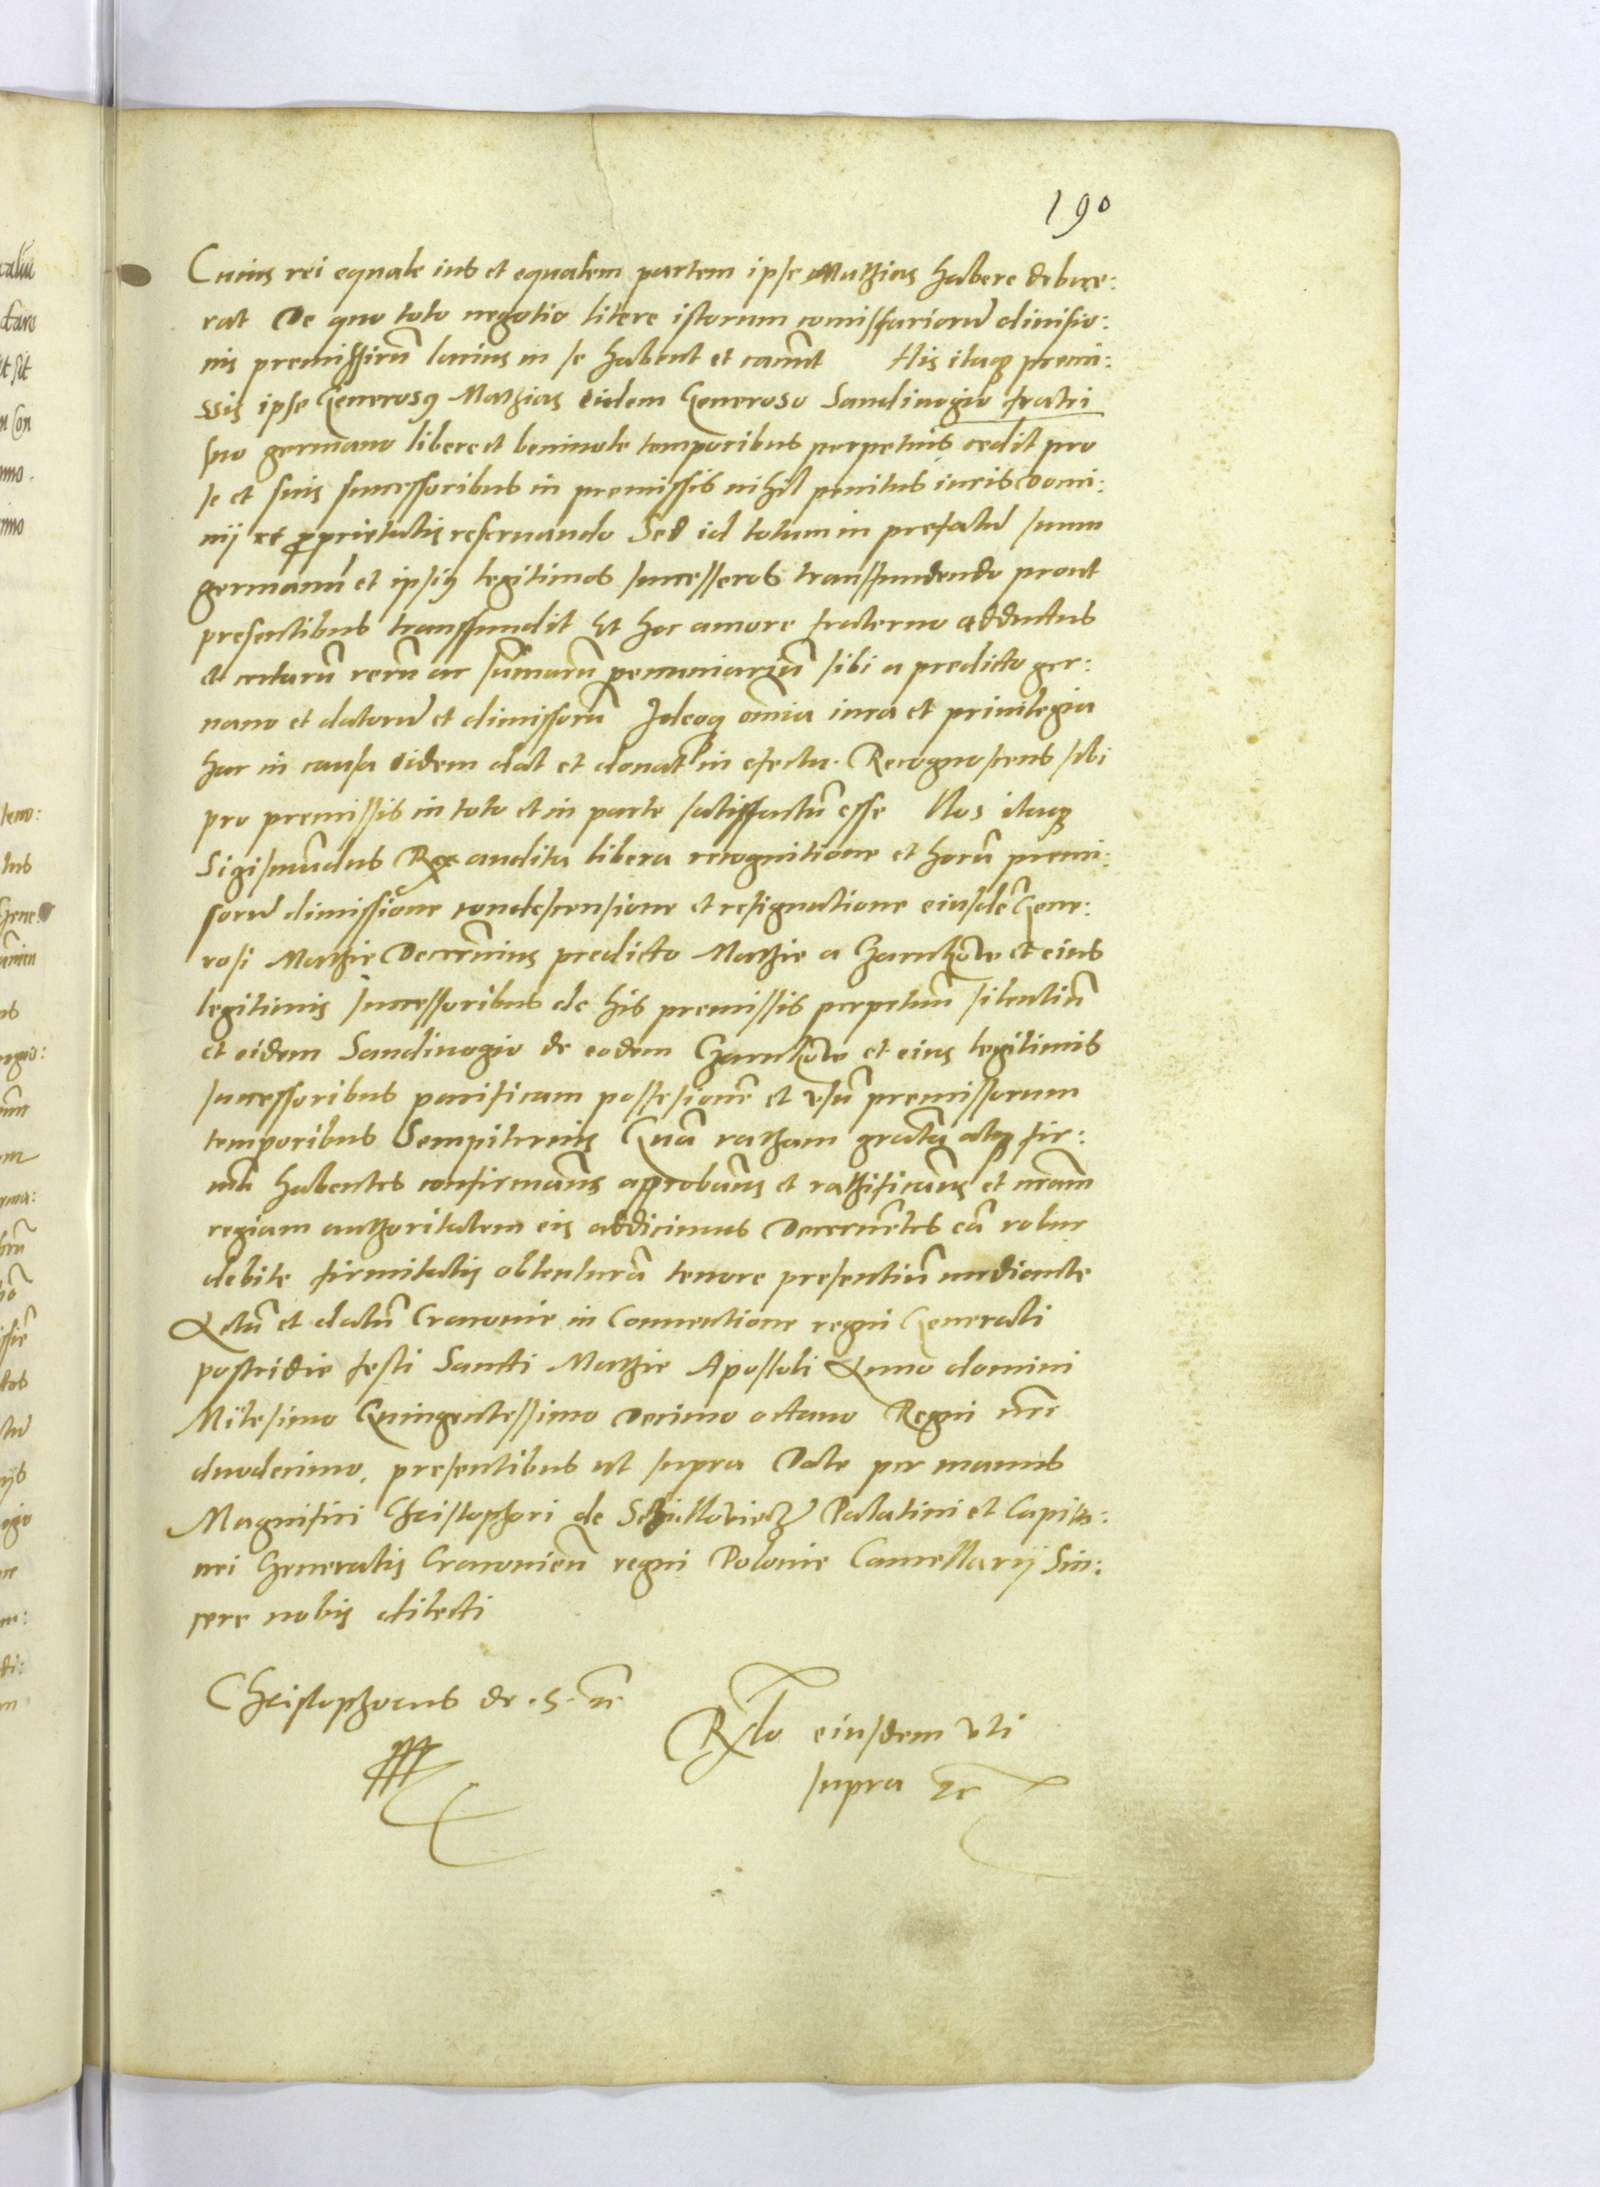 190
Cuius rei equale ius et equalem partem ipse Mathias habere debue:
rat De quo toto negotio litere istorum comissariorũ diuisio:
nis premissirũ lacius in se habent et canũt His itaqꝫ premi:
ssis ipse Generosꝰ Mathias eidem Generoso Sandiuogio fratri
suo germano libere et beniuole temporibus perpetuis cedit pro
se et suis successoribus in premissis nihil penitus iuris Domi:
nij et ꝓprietatis reseruando Sed id totum in prefatũ suum
germanũ et ipsiꝰ legitimos successeros transfundendo prout
presentibus transfundit Et hoc amore fraterno adductus
et certarũ rerũ ac sũmarũ pecuniariũ sibi a predicto ger:
nano et datorũ et dimissorũ Ideoqꝫ om̃ia iura et priuilegia
hac in causa eidem dat et donat in efectu. Recognoscens sibi
pro premissis in toto et in parte satisfactũ esse Nos itaqꝫ
Sigismũdus Rex audita libera recognitione et horũ premi:
sorũ dimissione condescensione et resignatione eiusdẽ Gene:
rosi Mathie Decernimus predicto Mathie a Czarnkow et eius
legitimis successoribus de his premissis perpetuũ silentiũ
et eidem Sandiuogio de eodem Czarnkow et eius legitimis
successoribus pacificam possesionẽ et vsũ premissorum
temporibus Sempiternis Quã ratham gratã atqꝫ fir:
mã habentes confirmam̃s aprobam̃s et rathificam̃s et nr̃am
regiam authoritatem eis addicimus Decernẽtes eã robur
debite firmitatis obtenturã tenore presentiũ mediante
Actũ et datũ Cracouie in Conuentione regni Generali
postridie festi Sancti Mathie Apostoli Anno domini
Milesimo Quingentessimo Decimo octauo Regni nr̃i
duodecimo. presentibus ut supra Date per manus
Magnifici Christophori de Schidloviecz Palatini et Capita:
nei Generalis Cracouien̄ regni Polonie Cancellarij Sin:
cere nobis dilecti
Christophorus de .S. cc
Rlo eiusdem vti
supra cc